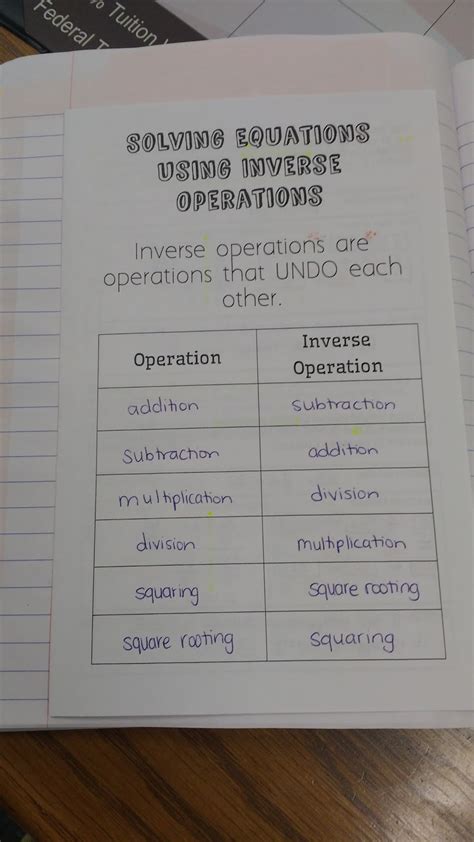 % Tuition
Federal T
SOLVING EQUATIONS
USING INVERSE
OPERATIONS
Inverse operations are
operations that UNDO each
other.
Operation Inverse Operation
addition subtraction
subtraction addition
multiplication division
division multiplication
squaring square rooting
square rooting squaring